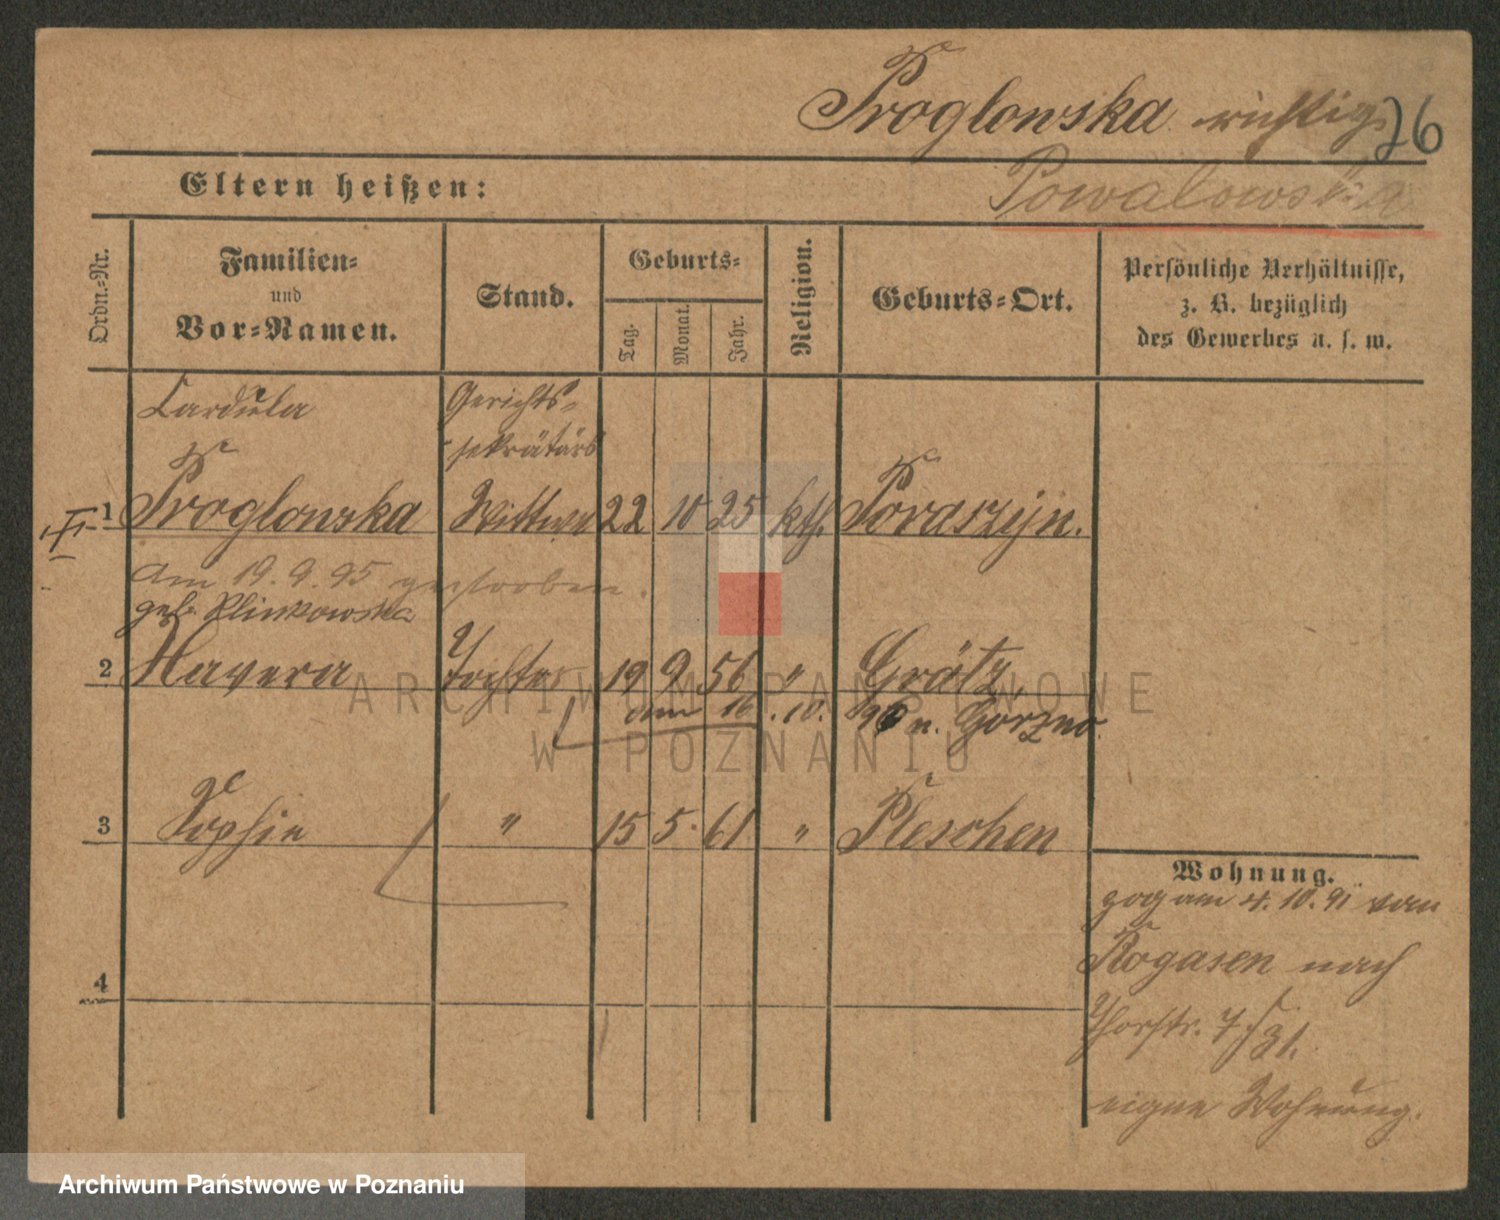 Proglowska richtig
26
Powalowska
Eltern heißen:
Ordn.-Nr.
Familien-
und
Vor-Namen.
Stand.
Geburts-
Tag.
Monat.
Jahr.
Religion.
Geburts-Ort.
Persönliche Verhältnisse,
z. B. bezüglich
des Gewerbes u. s. w.
Cardula Gerichts-
sekretärs
1 Proglowska Wittwe 22 10 25 kth. Poraszyn.
am 19. 9. 95 gestorben.
geb. Klinkowska
2 Tochter 19 9 56 " Grätz,
am 16. 10. 96 n. Gorzno.
3 Sophie " 15 5. 61 " Pleschen
Wohnung.
zog am 4. 10. 91 von
Rogasen nach
4
Thorstr. 7
eigne Wohnung.
ARCHIWUM PAŃSTWOWE
W POZNANIU
Archiwum Państwowe w Poznaniu